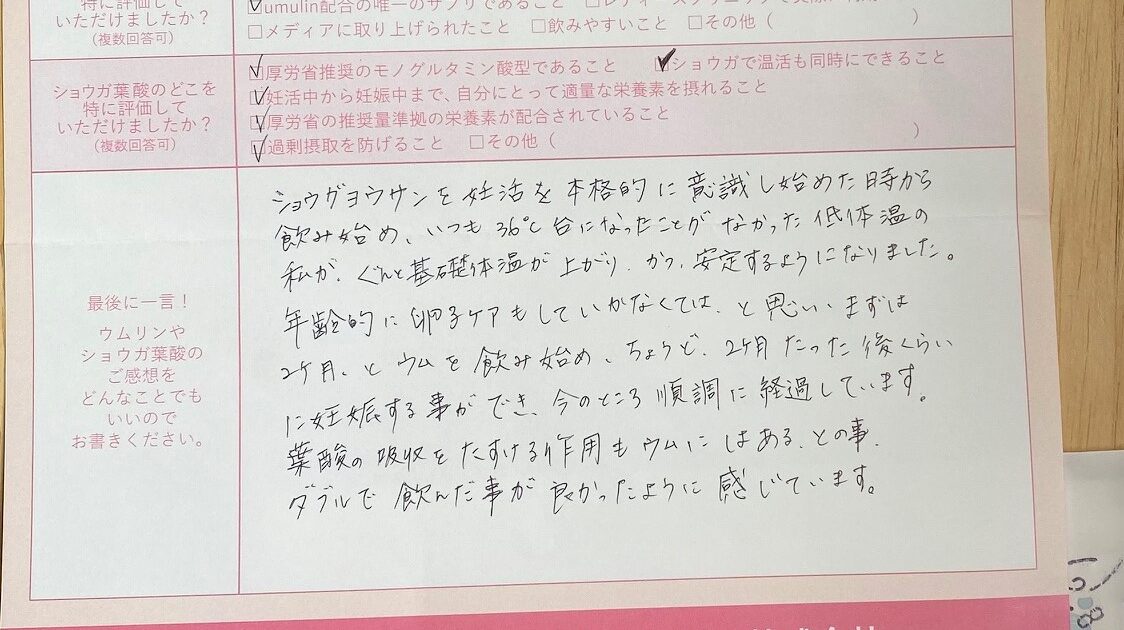 特に評価して
いただけましたか?
(複数回答可)
umulin配合の唯一のサプリであること
□メディアに取り上げられたこと □飲みやすいこと □その他( )
ショウガ葉酸のどこを
特に評価して
いただけましたか?
(複数回答可)
☑厚労省推奨のモノグルタミン酸型であること ☑ショウガで温活も同時にできること
☑妊活中から妊娠中まで、自分にとって適量な栄養素を摂れること
☑厚労省の推奨量準拠の栄養素が配合されていること
☑過剰摂取を防げること □その他( )
最後に一言!
ウムリンや
ショウガ葉酸の
ご感想を
どんなことでも
いいので
お書きください。
ショウガヨウサンを妊活を本格的に意識し始めた時から
飲み始め、いつも36℃台になったことがなかった低体温の
私が、ぐんと基礎体温が上がり、かつ、安定するようになりました。
年齢的に卵子ケアもしていかなくては、と思いまずは
2ヶ月、とウムを飲み始め、ちょうど、2ヶ月たった後くらい
に妊娠する事ができ、今のところ順調に経過しています。
葉酸の吸収をたすける作用もウムにはある、との事、
ダブルで飲んだ事が良かったように感じています。